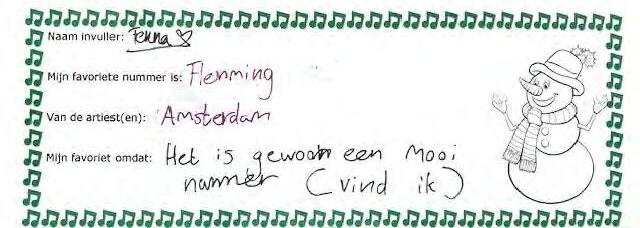 Naam invuller: Fenna
Mijn favoriete nummer is: Flemming
Van de artiest(en): Amsterdam
Mijn favoriet omdat: Het is gewoon een mooi
nummer (vind ik)